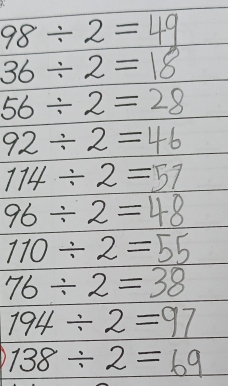 98 ÷ 2 = 49
36 ÷ 2 = 18
56 ÷ 2 = 28
92 ÷ 2 = 46
114 ÷ 2 = 57
96 ÷ 2 = 48
110 ÷ 2 = 55
76 ÷ 2 = 38
194 ÷ 2 = 97
138 ÷ 2 = 69